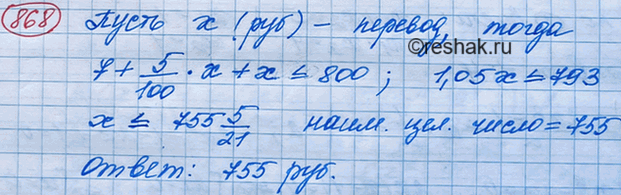 868 Пусть x (руб) - перевод, тогда
©reshak.ru
7 + 5/100 · x + x ≤ 800 ; 1,05x ≤ 793
x ≤ 755 5/21 наим. цел. число = 755
Ответ: 755 руб.